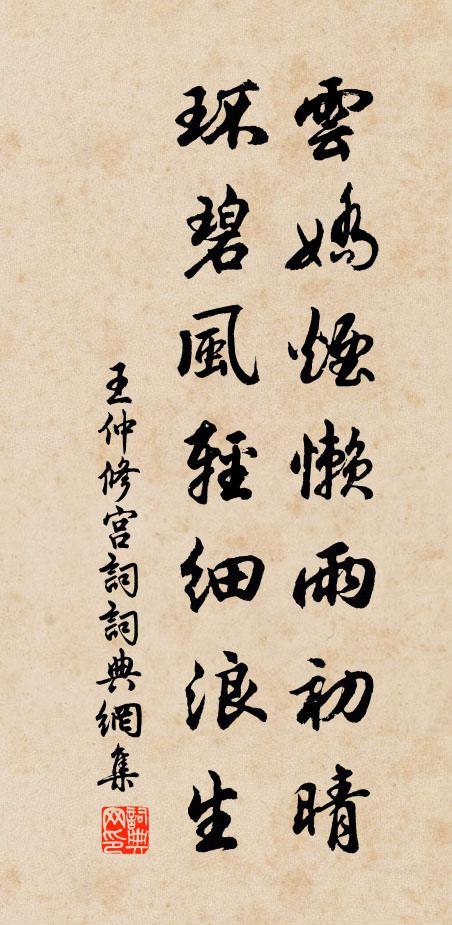 雲嬌煙懶雨初晴
環碧風輕細浪生
王仲修宮詞詞典網集
詞典网印